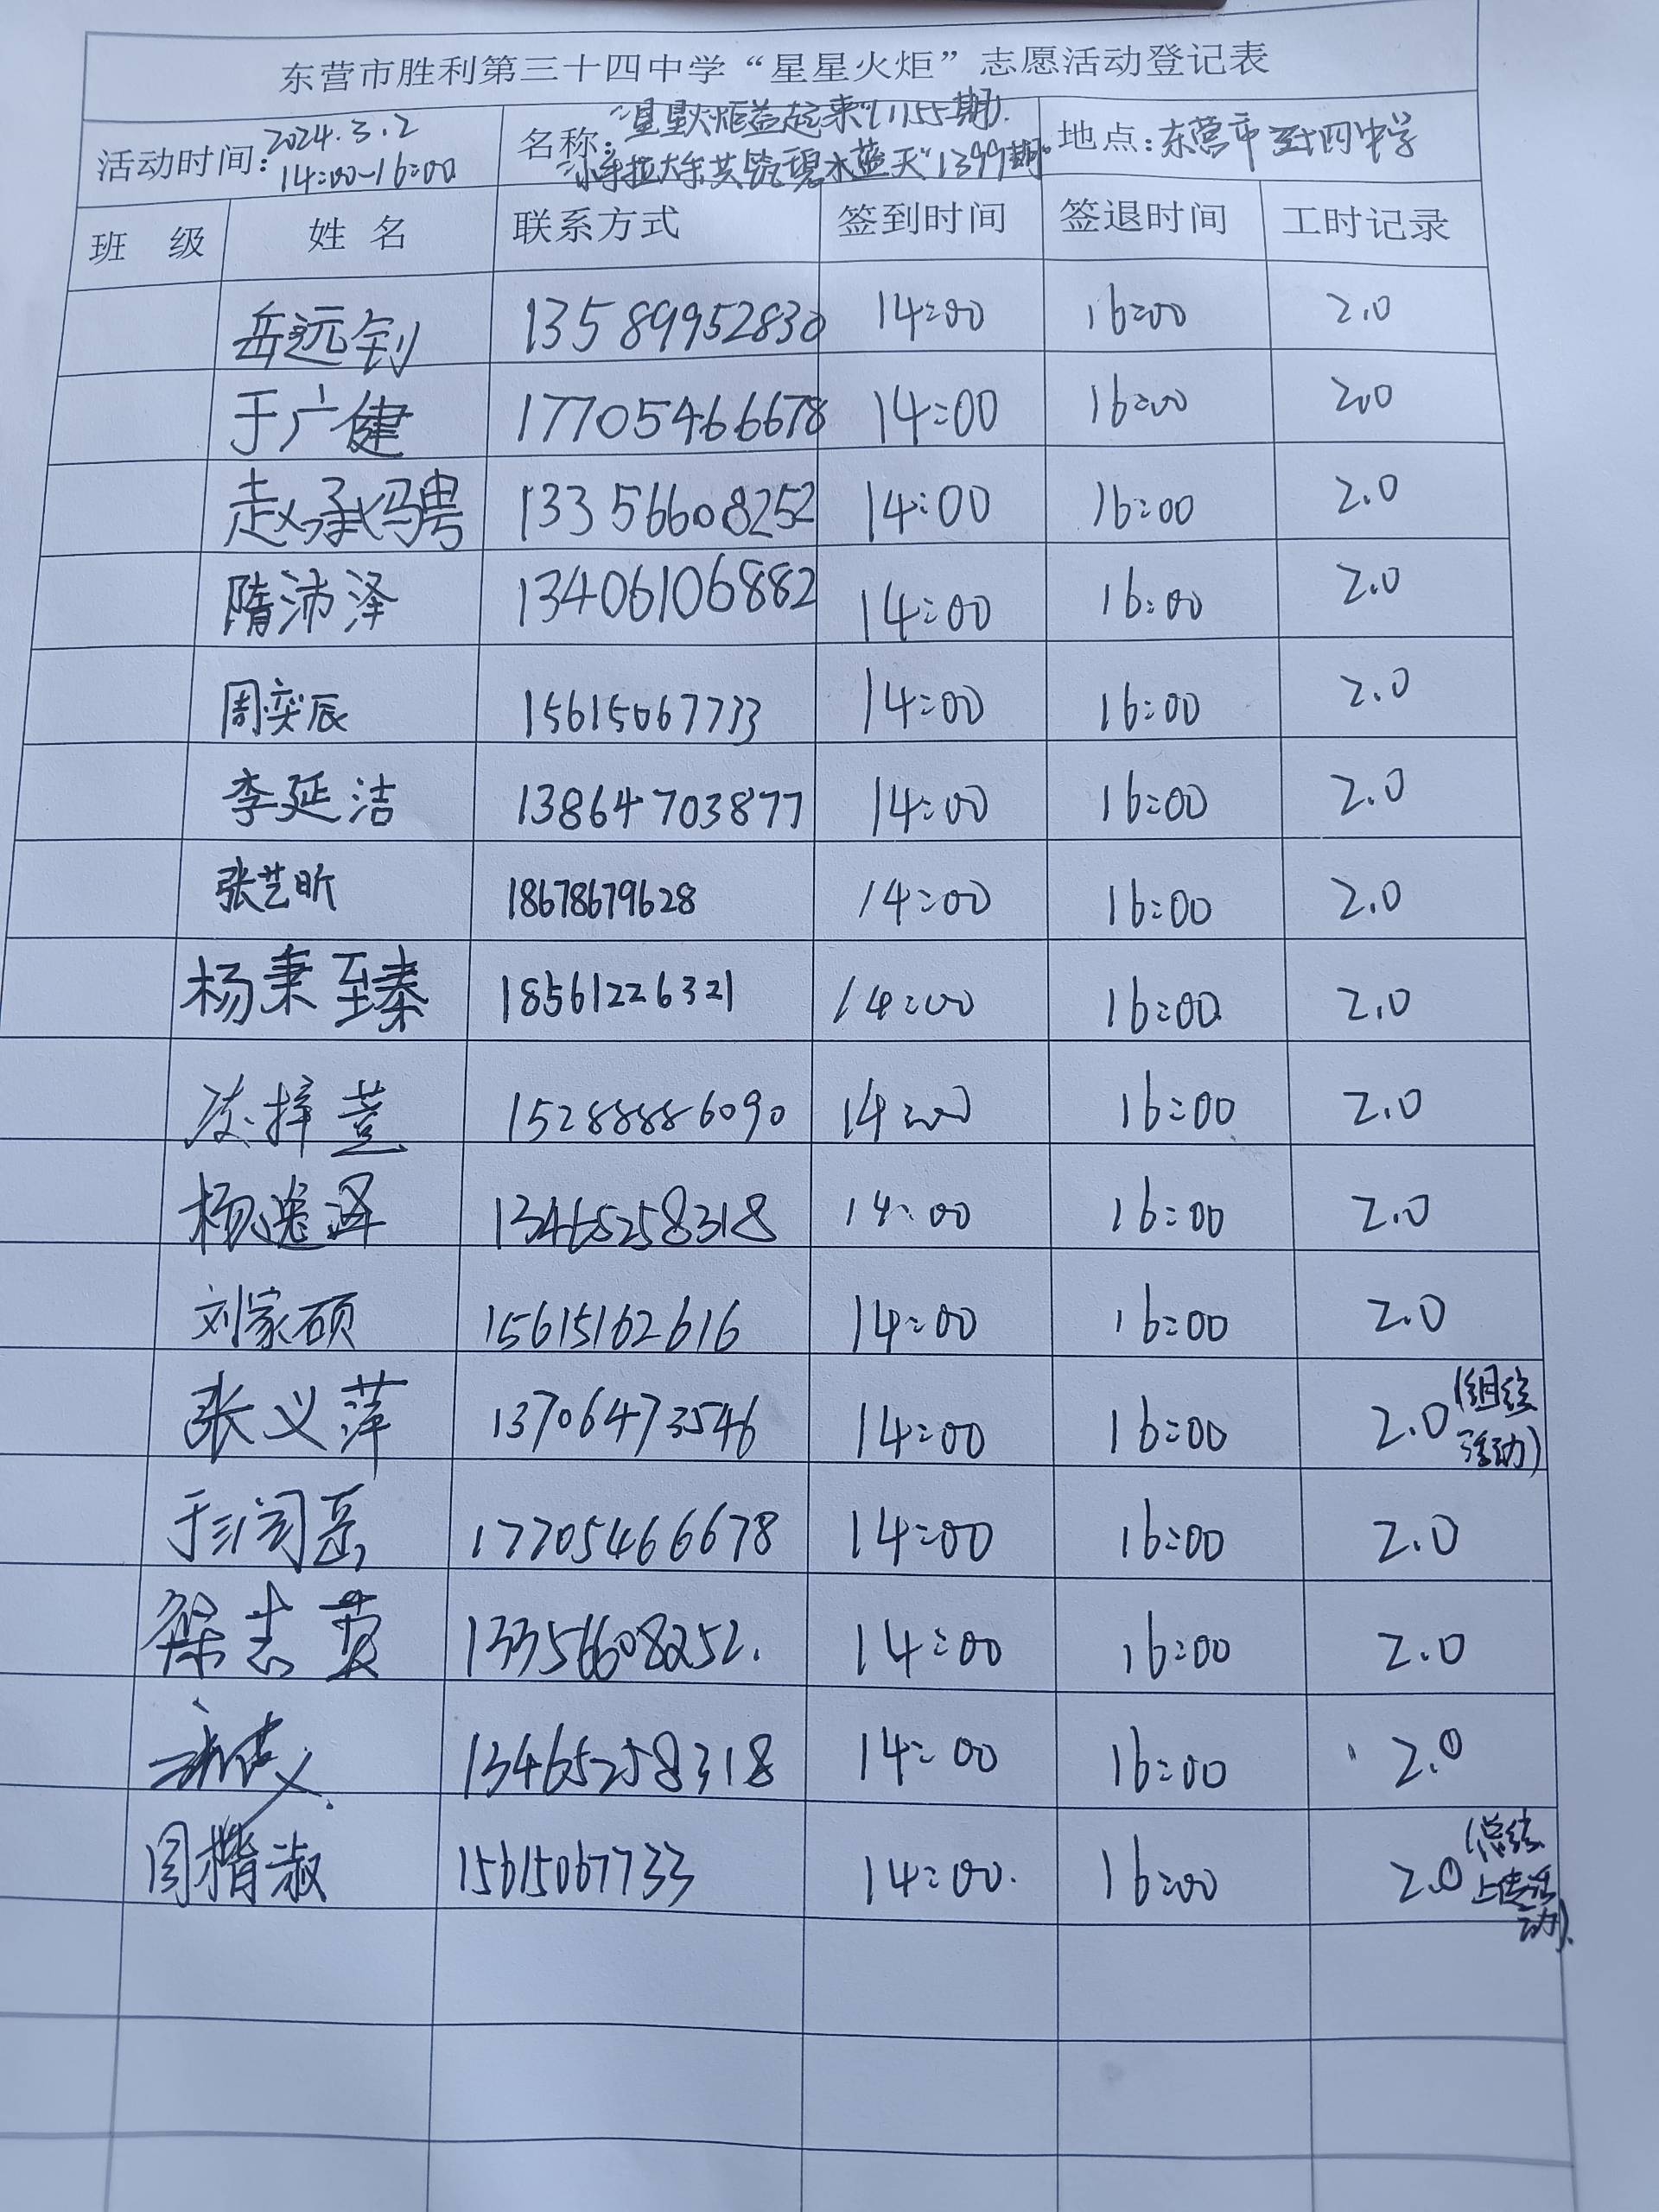 东营市胜利第三十四中学“星星火炬”志愿活动登记表
活动时间：2024.3.2 14:00-16:00 名称：“星星火炬益起来”(1155期). 共筑碧水蓝天"1399期" 地点：东营市三十四中学
班 级 姓 名 联系方式 签到时间 签退时间 工时记录
岳远钊 13589952830 14:00 16:00 2.0
于广健 17705466678 14:00 16:00 2.0
赵承骋 13356608252 14:00 16:00 2.0
隋沛泽 13406106882 14:00 16:00 2.0
周奕辰 15615067733 14:00 16:00 2.0
李延洁 13864703877 14:00 16:00 2.0
张艺昕 18678679628 14:00 16:00 2.0
杨秉至臻 18561226321 14:00 16:00 2.0
15288886090 14:00 16:00 2.0
杨逸泽 13465258318 14:00 16:00 2.0
刘家硕 15615162616 14:00 16:00 2.0
张义萍 13706473546 14:00 16:00 2.0 (组织活动)
于 17705466678 14:00 16:00 2.0
梁志英 13356608252. 14:00 16:00 2.0
13465258318 14:00 16:00 2.0
周楷淑 15615067733 14:00. 16:00 2.0 (总结上传活动).